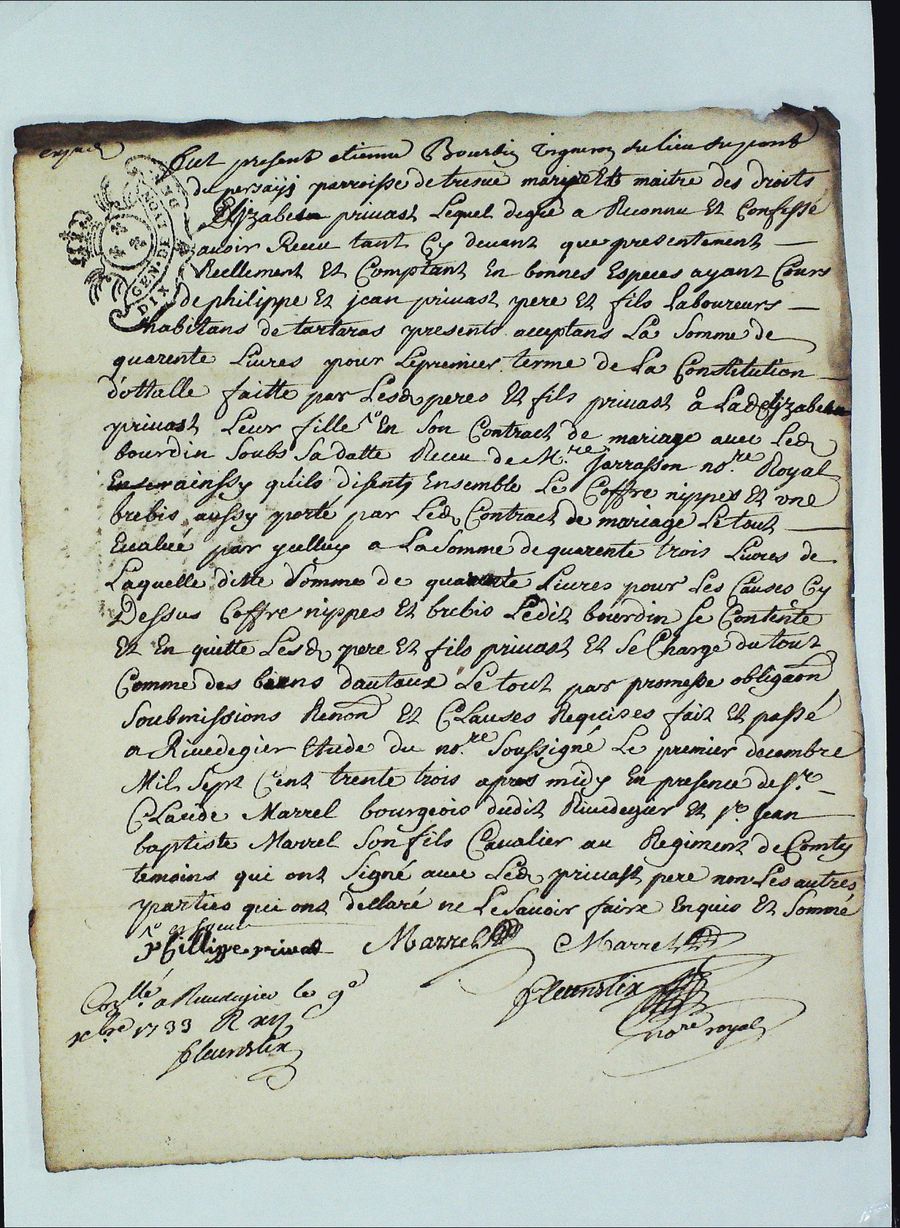 fut present etienne Bourdin vigneron du lieu du pont
de persaÿ parroisse de tresve marÿ Et maitre des droits
Elizabeth privast Lequel degré a Reconnu Et Confessé
avoir Receu tant Cy devant que presentement
Reellement Et Comptant En bonnes Especes ayant Cours
de philippe Et jean privast pere Et fils Laboureurs
habitans de tartaras presents acceptans La Somme de
quarente Livres pour Le premier terme de La Constitution
d'ottalle faitte par Lesd peres Et fils privast à Lad Elizabeth
privast Leur fille En Son Contract de mariage avec Led
bourdin Soubs Sa datte Receu de M.re jarrasson no.re Royal
ainssy qu'ils disent Ensemble Le Coffre nippes Et une
brebis aussy porté par Led Contract de mariage Le tout
Evalué par yCelluy a La Somme de quarente trois Livres de
Laquelle ditte Somme de quarente Livres pour Les Causes Cy
Dessus Coffre nippes Et brebis Ledit bourdin se Contente
Et En quitte Lesd pere Et fils privast Et se Charge du tout
Comme des biens dautaux Le tout par promesse obligaon
Soubmissions Renon Et Clauses Requises fait Et passé
a Rivedegier Etude du no.re Soussigné Le premier decembre
Mil Sept Cent trente trois apres midy En presence de S.r
Claude Marrel bourgeois dudit Rivedegier Et S.r Jean
baptiste Marrel Son fils Cavalier au Regiment de Comty
temoins qui ont Signé avec Led privast pere non Les autres
parties qui ont dellaré ne Le Savoir faire Enquis Et Sommé
phillippe privat Marrel Marrel
fleurdelix
no.re royal
Con.llé a Rivedegier le 9e
xbre 1733 R xij
fleurdelix
GEN. DE LION
DIX DEN